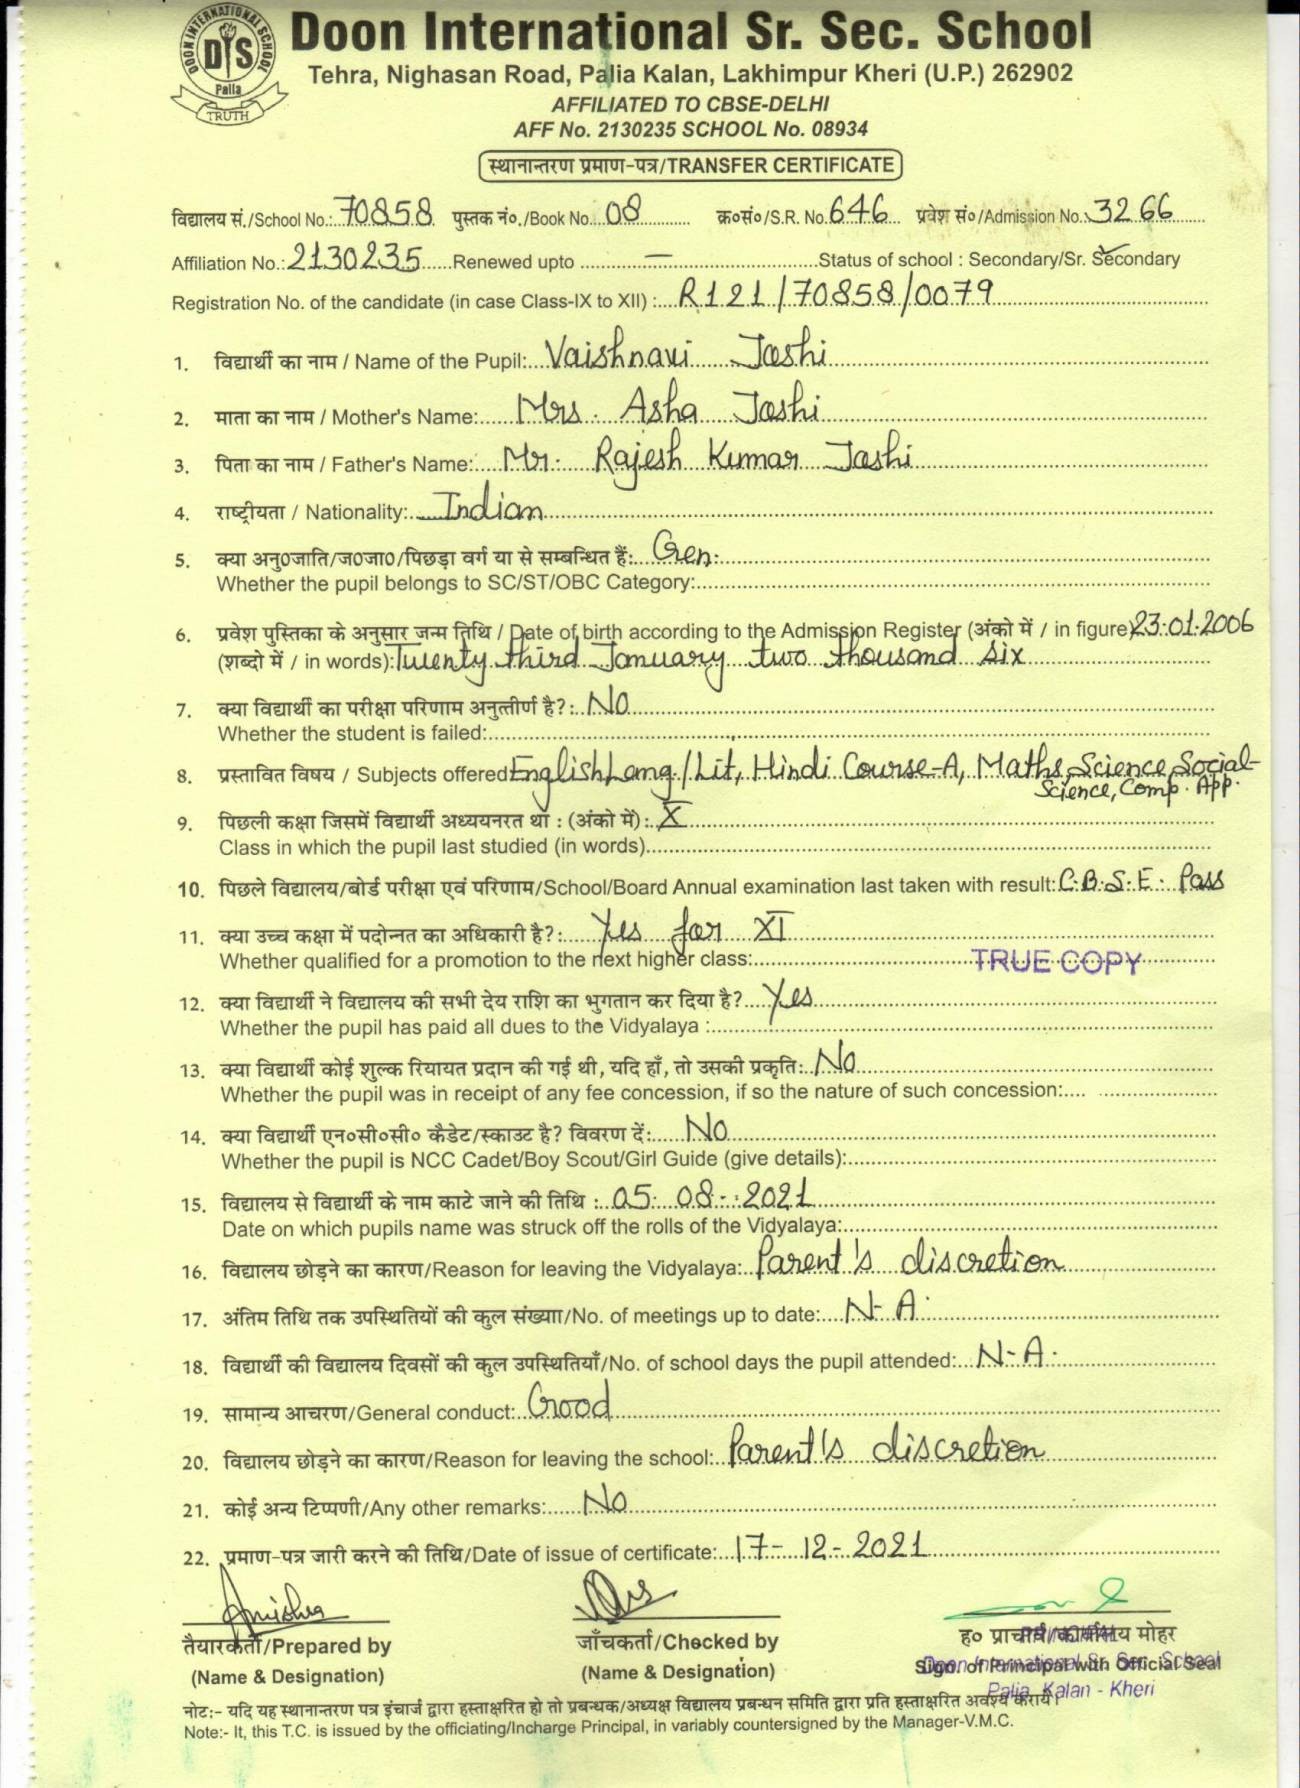 DOON INTERNATIONAL SCHOOL
DIS
Palia
TRUTH
Doon International Sr. Sec. School
Tehra, Nighasan Road, Palia Kalan, Lakhimpur Kheri (U.P.) 262902
AFFILIATED TO CBSE-DELHI
AFF No. 2130235 SCHOOL No. 08934
स्थानान्तरण प्रमाण-पत्र/TRANSFER CERTIFICATE
विद्यालय सं./School No.: 70858 पुस्तक नं०/Book No. 08 क्र०सं०/S.R. No. 646 प्रवेश सं०/Admission No.: 3266
Affiliation No.: 2130235 Renewed upto — Status of school : Secondary/Sr. Secondary
Registration No. of the candidate (in case Class-IX to XII) : R121/70858/0079
1. विद्यार्थी का नाम / Name of the Pupil: Vaishnavi Joshi
2. माता का नाम / Mother's Name: Mrs. Asha Joshi
3. पिता का नाम / Father's Name: Mr. Rajesh Kumar Joshi
4. राष्ट्रीयता / Nationality: Indian
5. क्या अनु०जाति/ज०जा०/पिछड़ा वर्ग या से सम्बन्धित हैं: Gen.
Whether the pupil belongs to SC/ST/OBC Category:
6. प्रवेश पुस्तिका के अनुसार जन्म तिथि / Date of birth according to the Admission Register (अंको में / in figure) 23.01.2006
(शब्दो में / in words): Twenty third January two thousand six
7. क्या विद्यार्थी का परीक्षा परिणाम अनुत्तीर्ण है?: No
Whether the student is failed:
8. प्रस्तावित विषय / Subjects offered English Lang./Lit, Hindi Course-A, Maths, Science, Social-
Science, Comp. App.
9. पिछली कक्षा जिसमें विद्यार्थी अध्ययनरत था : (अंको में): X
Class in which the pupil last studied (in words)
10. पिछले विद्यालय/बोर्ड परीक्षा एवं परिणाम/School/Board Annual examination last taken with result: C.B.S.E. Pass
11. क्या उच्च कक्षा में पदोन्नत का अधिकारी है?: Yes for XI
Whether qualified for a promotion to the next higher class:
TRUE COPY
12. क्या विद्यार्थी ने विद्यालय की सभी देय राशि का भुगतान कर दिया है? Yes
Whether the pupil has paid all dues to the Vidyalaya :
13. क्या विद्यार्थी कोई शुल्क रियायत प्रदान की गई थी, यदि हाँ, तो उसकी प्रकृति: No
Whether the pupil was in receipt of any fee concession, if so the nature of such concession:
14. क्या विद्यार्थी एन०सी०सी० कैडेट/स्काउट है? विवरण दें: No
Whether the pupil is NCC Cadet/Boy Scout/Girl Guide (give details):
15. विद्यालय से विद्यार्थी के नाम काटे जाने की तिथि : 05-08-2021
Date on which pupils name was struck off the rolls of the Vidyalaya:
16. विद्यालय छोड़ने का कारण/Reason for leaving the Vidyalaya: Parent's discretion
17. अंतिम तिथि तक उपस्थितियों की कुल संख्याा/No. of meetings up to date: N.A.
18. विद्यार्थी की विद्यालय दिवसों की कुल उपस्थितियाँ/No. of school days the pupil attended: N.A.
19. सामान्य आचरण/General conduct: Good
20. विद्यालय छोड़ने का कारण/Reason for leaving the school: Parent's discretion
21. कोई अन्य टिप्पणी/Any other remarks: No
22. प्रमाण-पत्र जारी करने की तिथि/Date of issue of certificate: 17-12-2021
तैयारकर्ता/Prepared by जाँचकर्ता/Checked by ह० प्राचार्य/कार्यालय मोहर
(Name & Designation) (Name & Designation) Sign. of Principal with Official Seal
Doon International Sr. Sec. School
Palia Kalan - Kheri
नोट:- यदि यह स्थानान्तरण पत्र इंचार्ज द्वारा हस्ताक्षरित हो तो प्रबन्धक/अध्यक्ष विद्यालय प्रबन्धन समिति द्वारा प्रति हस्ताक्षरित अवश्य करायें।
Note:- It, this T.C. is issued by the officiating/Incharge Principal, in variably countersigned by the Manager-V.M.C.